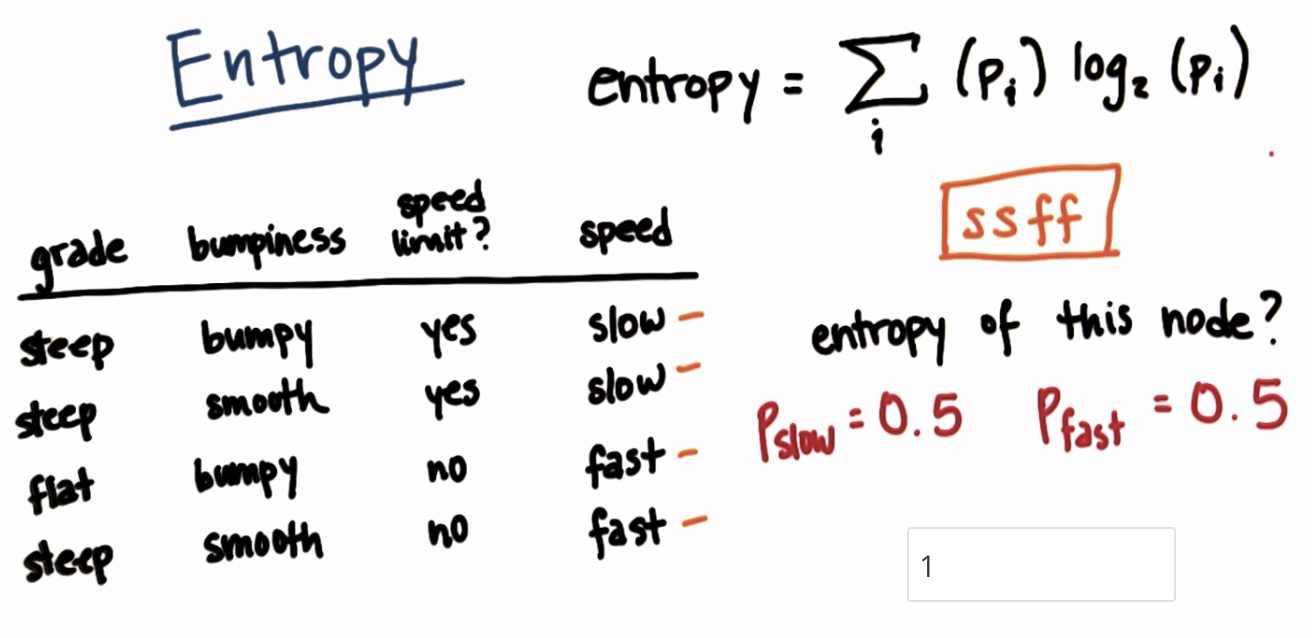 Entropy
entropy = ∑ᵢ (pᵢ) log₂ (pᵢ)
ssff
grade bumpiness speed limit? speed
steep bumpy yes slow –
steep smooth yes slow –
flat bumpy no fast –
steep smooth no fast –
entropy of this node?
Pslow = 0.5 Pfast = 0.5
1